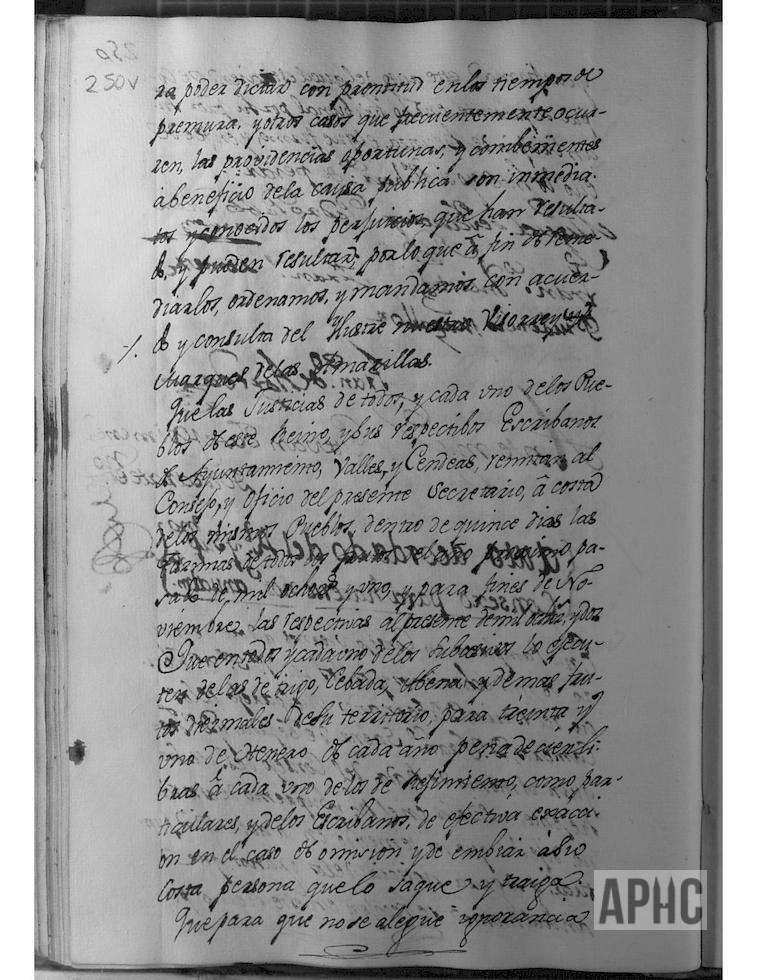 250
250V
ra poder dictar con prontitud en los tiempos de
premura, y otros casos que frecuentemente ocur-
ren, las providencias oportunas, y combenientes
a beneficio de la causa publica son inmedia-
tos y conocidos los perjuicios que han resulta-
do, y pueden resultar; por lo que â fin de reme-
diarlos, ordenamos, y mandamos con acuer-
do y consulta del Ilustre nuestro Visorrey
Marques de las Amarillas.
Que las Justicias de todos, y cada uno de los Pue-
blos de este Reino, y sus respectibos Escribanos
de Ayuntamiento, Valles, y Cendeas, remitan al
Consejo, y Oficio del presente Secretario, â costa
de los mismos Pueblos, dentro de quince dias las
Tazmias de todos los granos del año proximo, pa-
sado de mil ochoz.s y uno, y para fines de No-
viembre, las respectivas al presente de mil ochoz.s y dos
Que en todos y cada uno de los subcesivos lo ejecu-
ten de las de trigo, Cebada, Abena, y demas fru-
tos diezmales de su territorio, para treinta y
uno de Henero de cada año pena de cien li-
bras â cada uno de los de Rejimiento, como par-
ticulares, y de los Escribanos, de efectiva exacci-
on en el caso de omision y de embiar a su
costa persona que lo saque y traiga.
Que para que no se alegue ignorancia
APHC